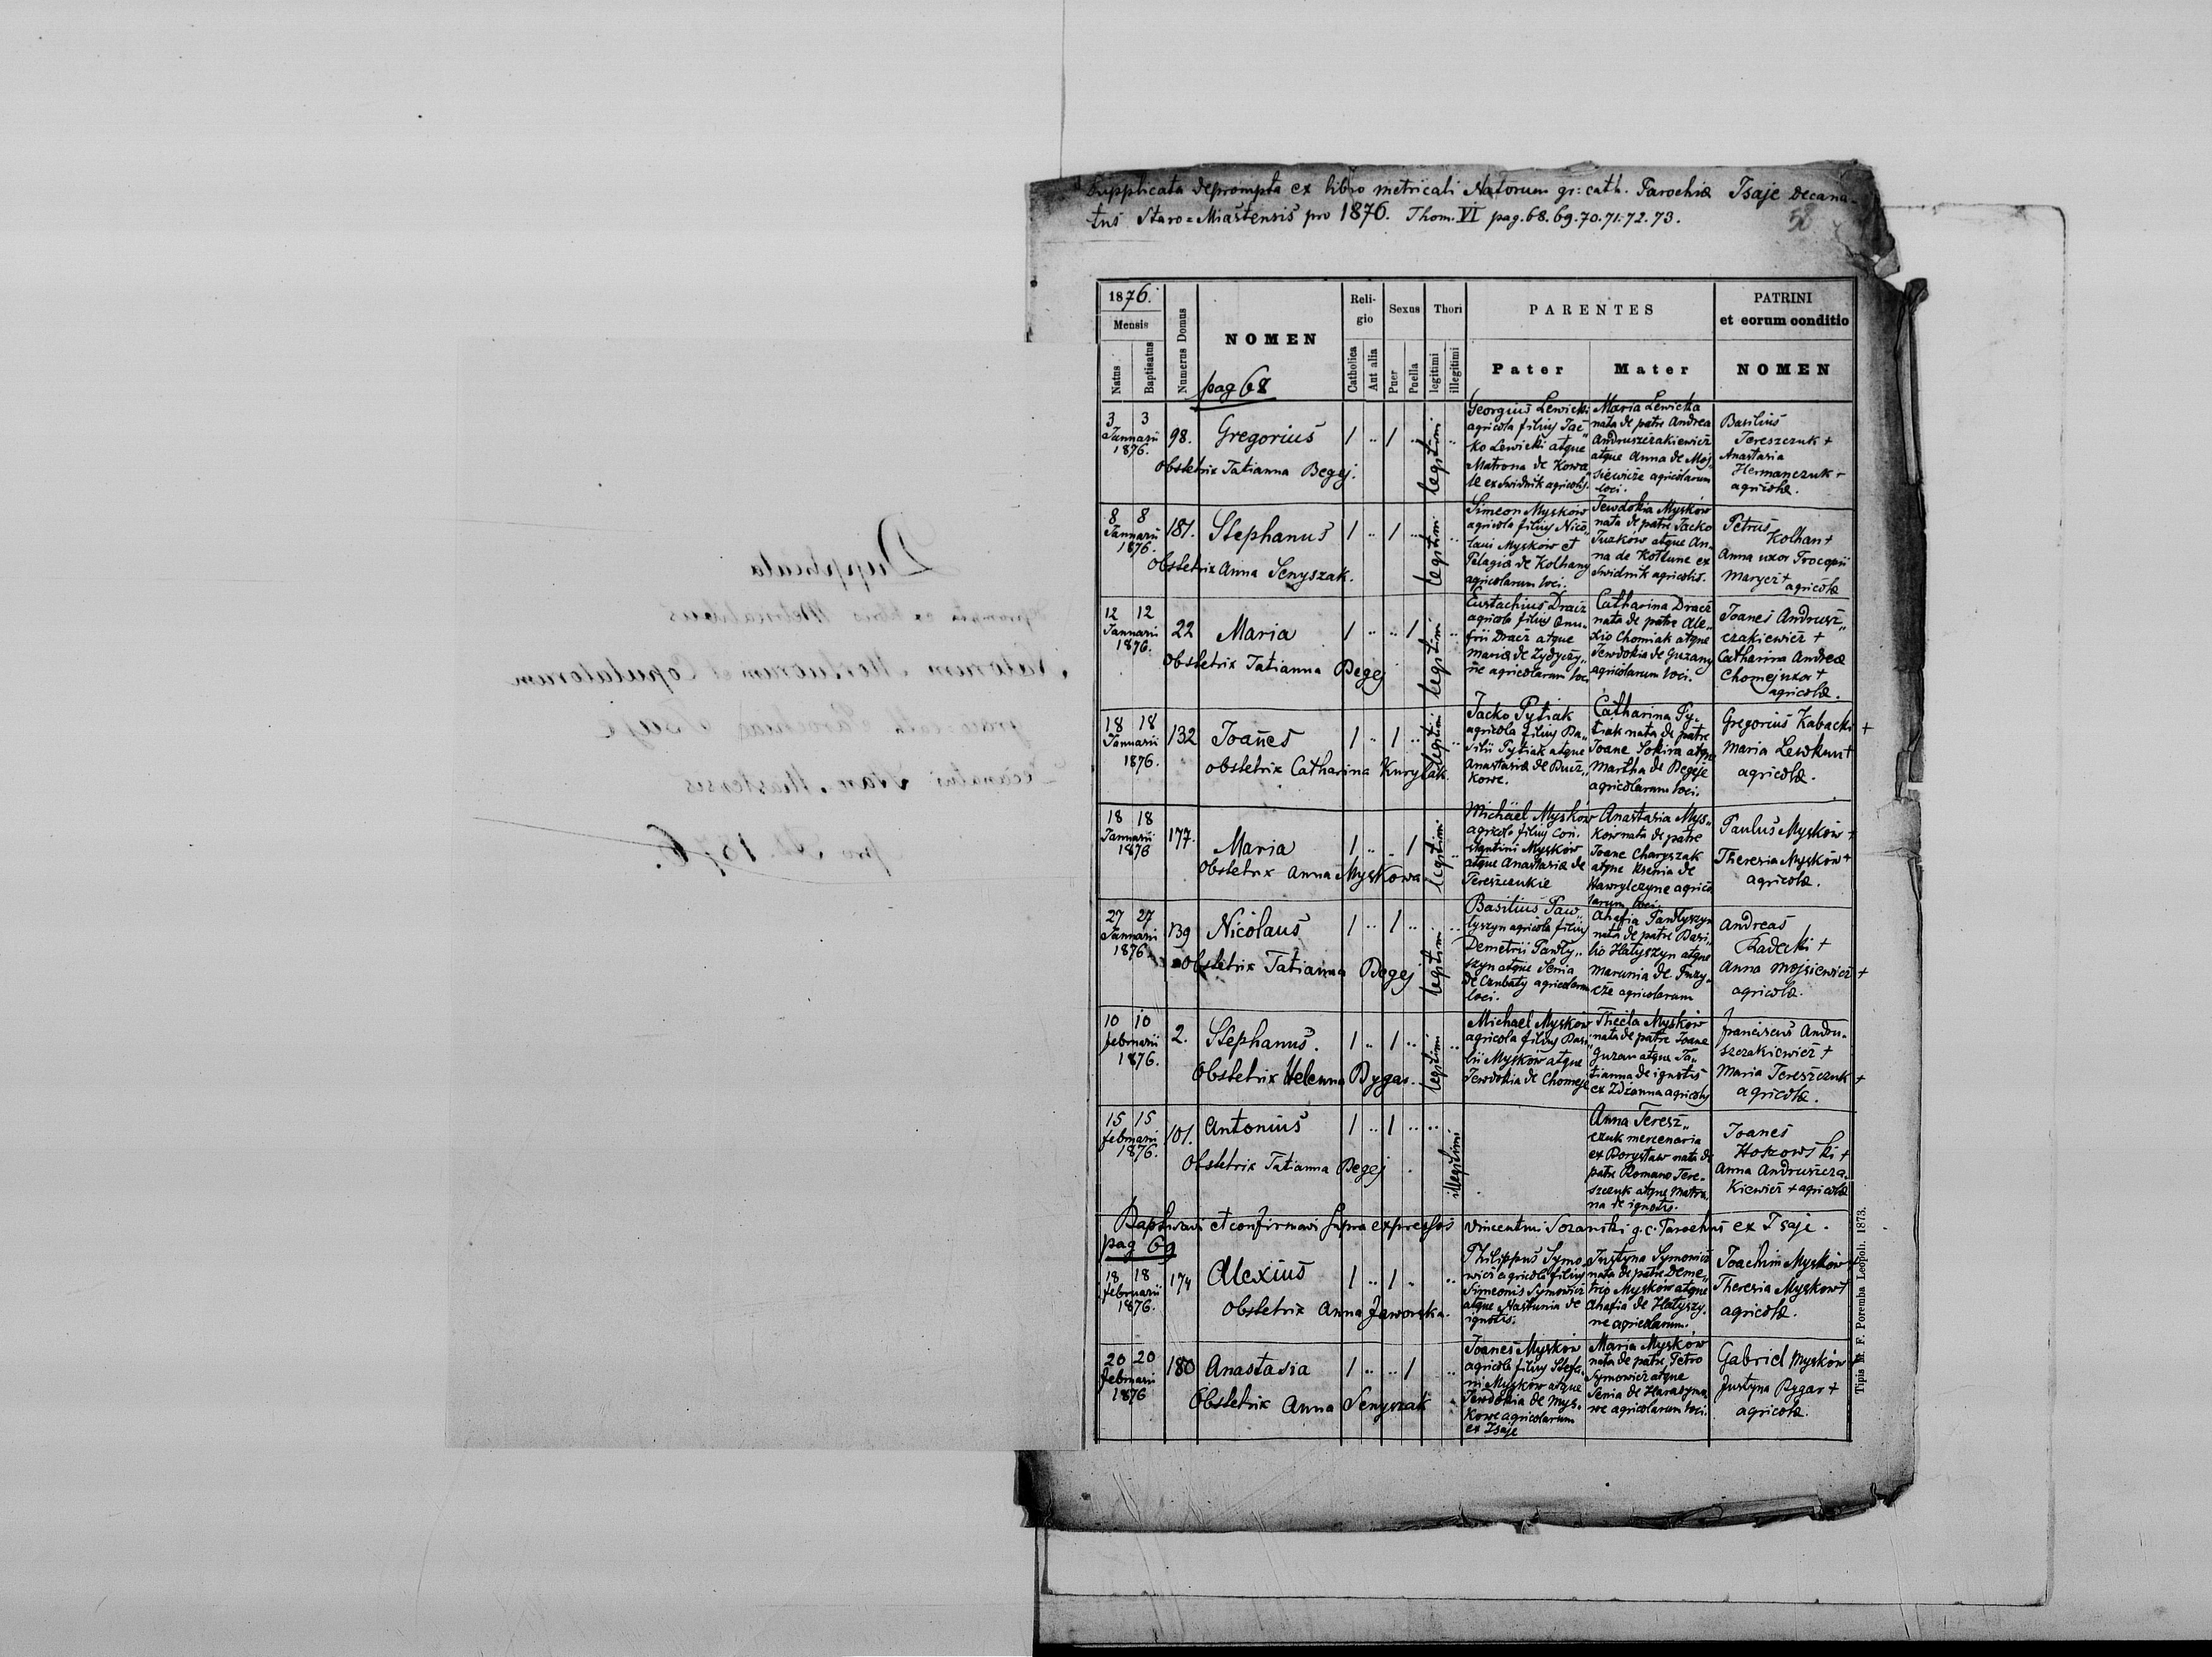 Dupplicata deprompta ex libro metricali Natorum gr: cath. Parochiæ Isaje decana-
tus Staro=Miastensis pro 1876. Thom. VI pag. 68. 69. 70. 71. 72. 73.
58
1876.
Mensis
Natus
Baptisatus
Numerus Domus
NOMEN
pag 68
Religio
Catholica
Aut alia
Sexus
Puer
Puella
Thori
legitimi
illegitimi
PARENTES
Pater
Mater
PATRINI
et eorum conditio
NOMEN
3 3
Januarii
1876.
98.
Gregorius
1 .. 1 ..
legitimi
Obstetrix Tatianna Begej.
Georgius Lewicki
agricola filius Jac-
ko Lewicki atque
Matrona de Kowa
le ex Swidnik agricolis.
Maria Lewicka
nata de patre Andrea
Andruszczakiewicz
atque Anna de Moj
siewicze agricolarum
loci.
Basilius
Tereszczuk +
Anastasia
Hermanczuk +
agricolæ.
8 8
Januarii
1876.
181.
Stephanus
1 .. 1 ..
legitimi
Obstetrix Anna Senyszak.
Simeon Mysków
agricola filius Nico
laui Mysków et
Pelagia de Kolhany
agricolarum loci.
Jewdokia Mysków
nata de patre Jacko
atque An
na de ex
Swidnik agricolis.
Petrus
Kolhan +
Anna uxor Procopii
Marycz + agricolæ
12 12
Januarii
1876.
22
Maria
1 .. .. 1
legitimi
Obstetrix Tatianna Begej
Eustachius Dracz
agricola filius Onu-
frii Dracz atque
Maria de Zydyczy-
ne agricolarum loci
Catharina Dracz
nata de patre Ale-
xio Chomiak atque
Jewdokia de Guzany
agricolarum loci.
Joanes Andrusz-
czakiewicz +
Catharina Andreæ
Chomej uxor +
agricolæ.
18 18
Januarii
1876.
132
Joañes
1 .. 1 ..
legitimi
Obstetrix Catharina Kurylak.
Jacko Pytiak
agricola filius Ba-
silii Pytiak atque
Anastasia de
kowe.
Catharina Py-
tiak nata de patre
Joane Sokira atque
Martha de Begeje
agricolarum loci.
Gregorius Kabacki +
Maria Lewkun +
agricolæ.
18 18
Januarii
1876
177.
Maria
1 .. .. 1
legitimi
Obstetrix Anna Myskowa
Michael Mysków
agricola filius Con-
stantini Mysków
atque Anastasia de
Tereszczukie
Anastasia Mys-
ków nata de patre
Joane Charyszak
atque Ksenia de
Hawrylczyne agrico
larum loci.
Paulus Mysków +
Theresia Mysków +
agricolæ.
27 27
Januarii
1876.
139
Nicolaus
1 .. 1 ..
legitimi
Obstetrix Tatianna Begej
Basilius Paw-
łyszyn agricola filius
Demetrii Pawły-
szyn atque Senia
de Czubaty agricolarum
loci.
Ahafia Pawłyszyn
nata de patre Basi-
lio Hatyszyn atque
Marunia de
agricolarum
Andreas
Radecki +
Anna Mojsiewicz +
agricolæ.
10 10
februarii
1876.
2.
Stephanus.
1 .. 1 ..
legitimi
Obstetrix Helenna Bygar.
Michael Mysków
agricola filius Basi-
lii Mysków atque
Jewdokia de Chomeje
Thecla Mysków
nata de patre Joane
Guzan atque Ta-
tianna de ignotis
ex agricolis
franciscus Andru-
szczakiewicz +
Maria Tereszczuk +
agricolæ.
15 15
februarii
1876.
101.
Antonius
1 .. 1 .. ..
illegitimi
Obstetrix Tatianna Begej.
Anna Teresz-
czuk mercenaria
ex Borysław nata de
patre Romano Tere-
szczuk atque Matro
na de ignotis.
Joanes
Hoszowski +
Anna Andruszcza
kiewicz + agricolæ
Baptisavi et confirmavi supra expressos Vincentius Sozanski g. c. Parochus ex Isaje.
pag 69
18 18
februarii
1876.
174
Alexius
1 .. 1 ..
Obstetrix Anna Jaworska.
Philippus Symo
wicz agricola filius
Simeonis Symowicz
atque Nastunia de
ignotis.
Justyna Symowicz
nata de patre Deme-
trio Mysków atque
Ahafia de Hatyszy-
ne agricolarum.
Joachim Mysków +
Theresia Mysków +
agricolæ.
20 20
februarii
1876
180
Anastasia
1 .. .. 1
Obstetrix Anna Senyszak
Joanes Mysków
agricola filius Stepha-
ni Mysków atque
Jewdokia de Mys-
kowe agricolarum
ex Isaje
Maria Mysków
nata de patre Petro
Symowicz atque
Senia de Harasyma
we agricolarum loci.
Gabriel Mysków +
Justyna Bygar +
agricolæ.
Tipis M. F. Poremba Leopoli. 1873.
Dupplicata
deprompta ex libris Metricalibus
Natorum Mortuorum et Copulatorum
græco-cath. Parochiae Isaje
Decanatui Staro-Miastensis
pro A. 1876.